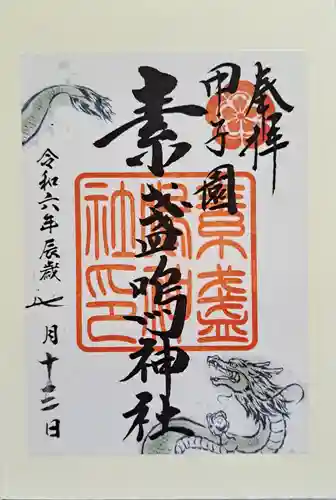 奉拝
甲子園
素盞嗚神社
令和六年辰歳
七月十三日
素盞
嗚神
社印